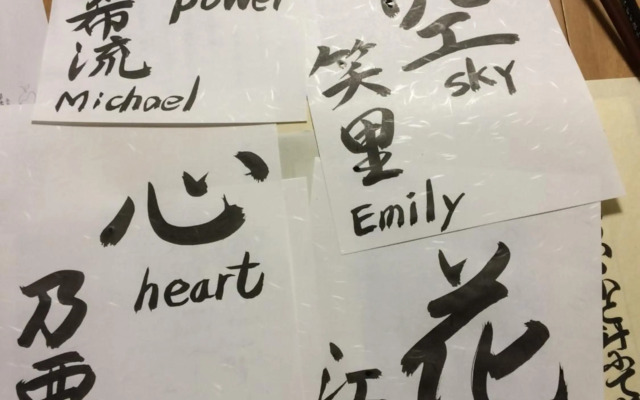 power
希流
Michael
空
sky
笑里
Emily
心
heart
乃
花
江